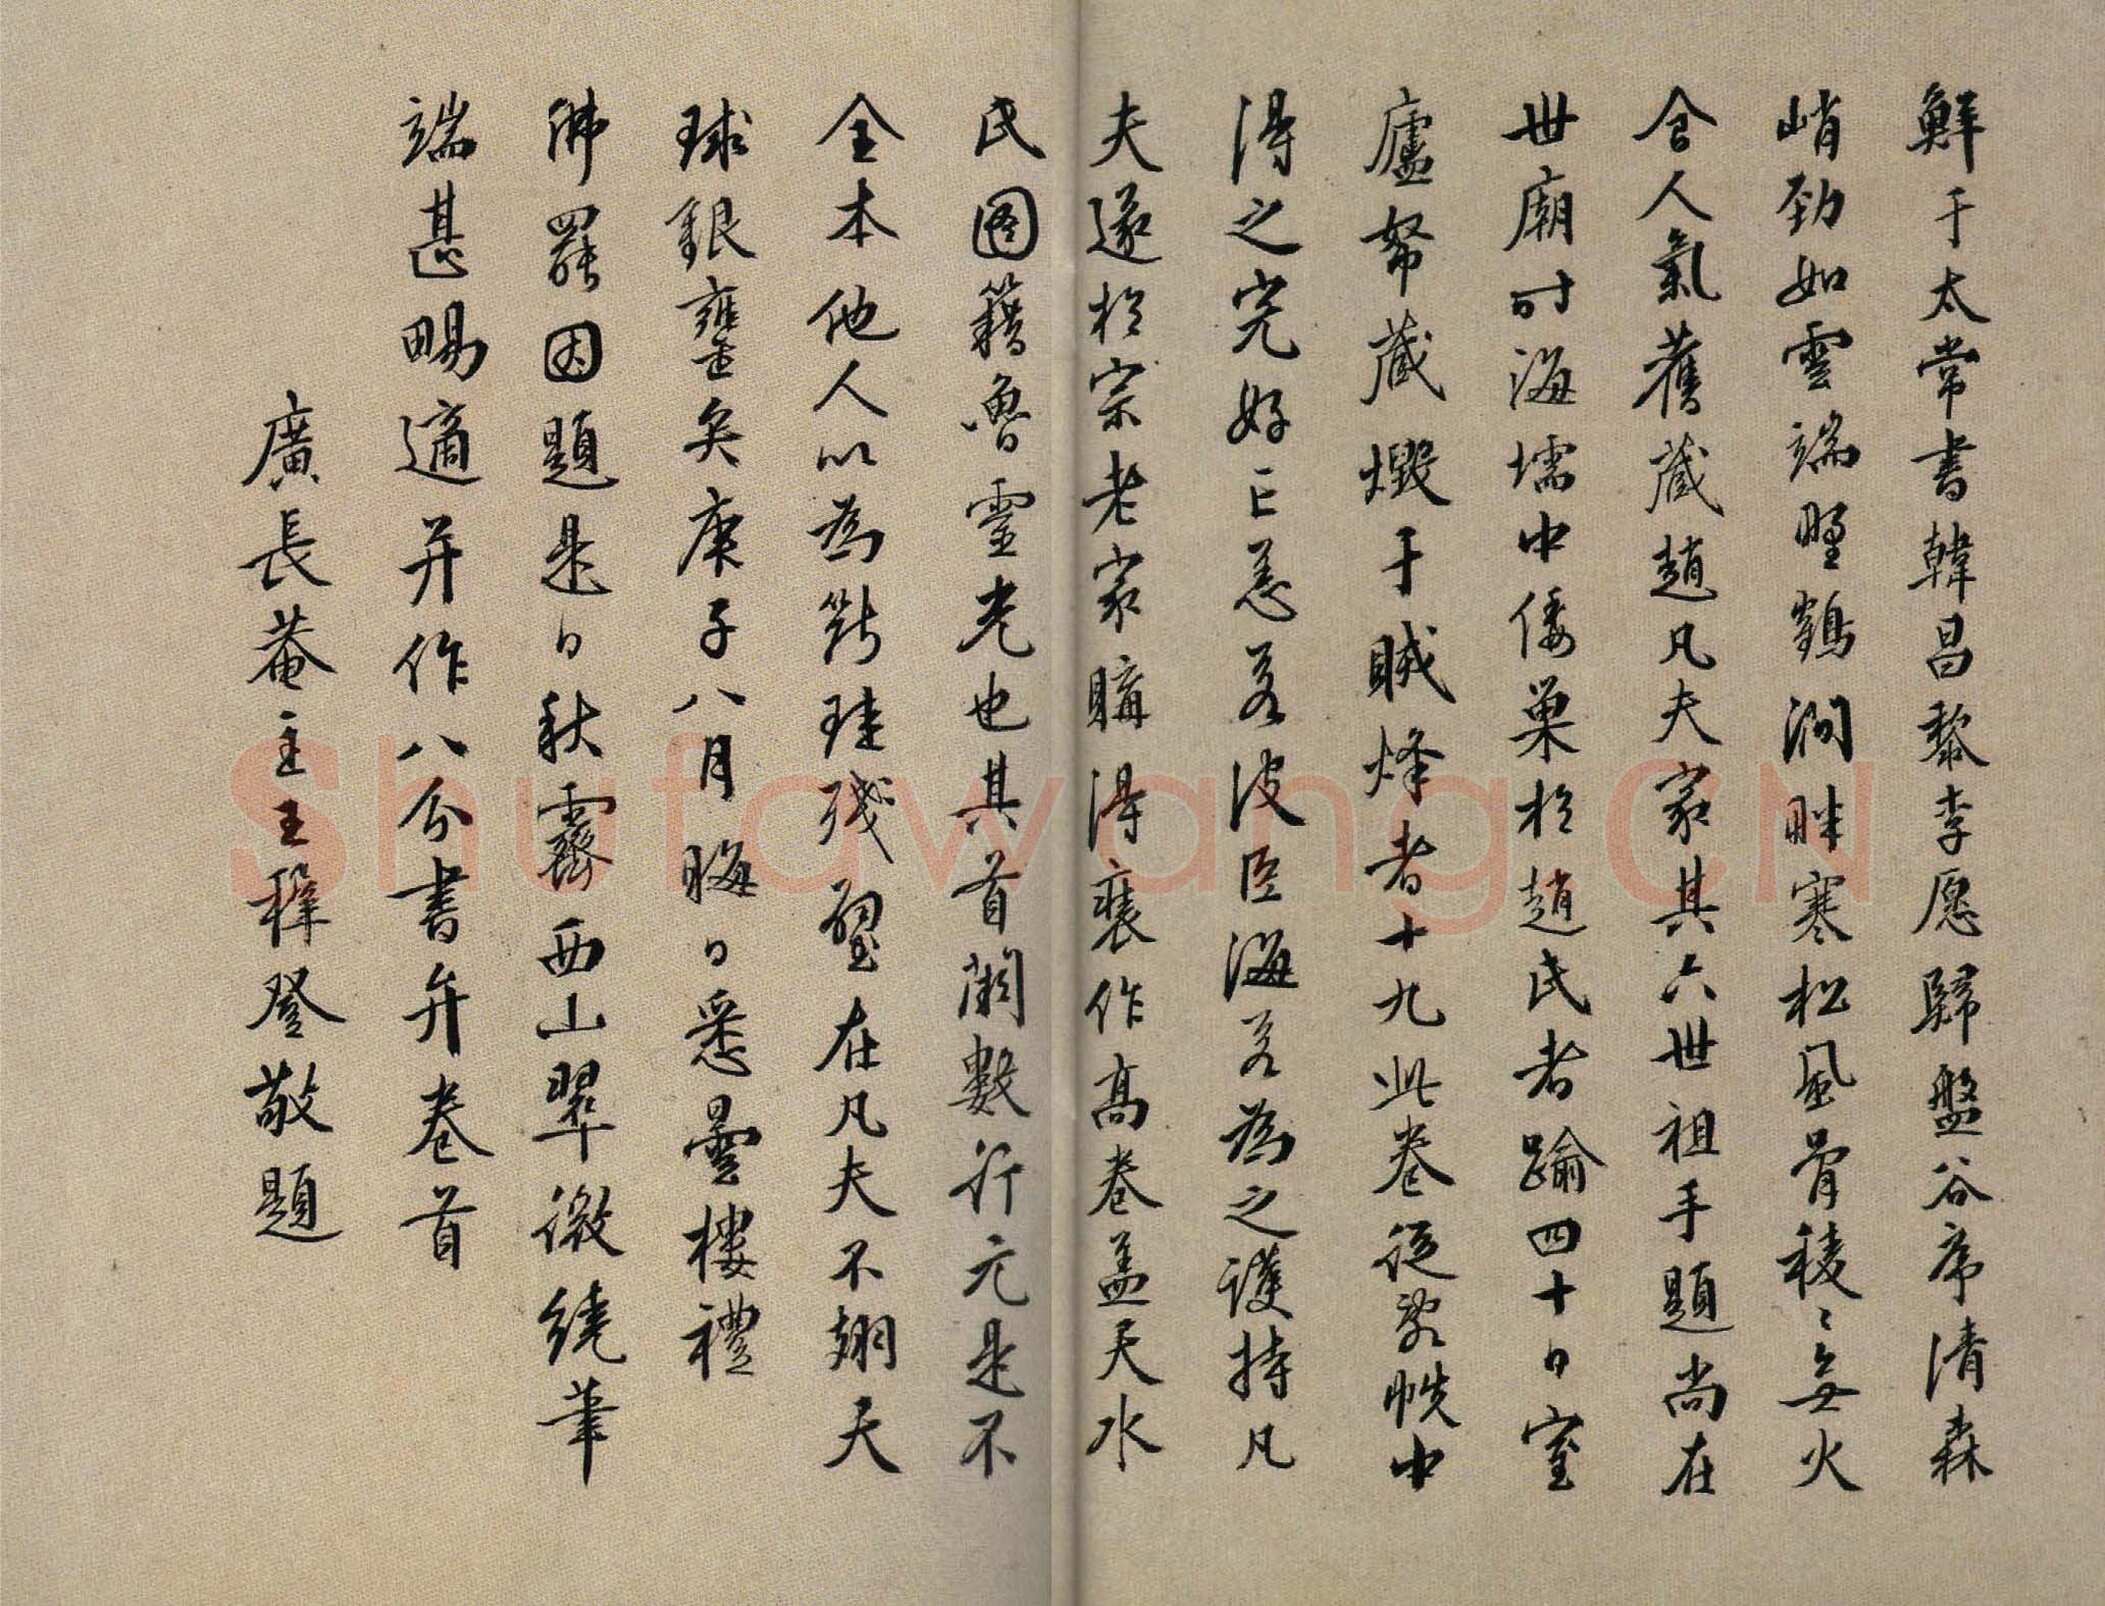 鮮于太常書韓昌黎李愿歸盤谷序清森
峭勁如雲端野鶴澗畔寒松風骨稜〻無火
食人氣舊藏趙凡夫家其六世祖手題尚在
世廟時海壖中倭巢於趙氏者踰四十日室
廬帑藏燬于賊烽者十九此卷從敗帙中
得之完好亡恙若波臣海若為之護持凡
夫遂於宗老家購得裝作高卷蓋天水
氏圖籍魯靈光也其首闕數行元是不
全本他人以為斷珪殘璧在凡夫不翅天
球銀甕矣庚子八月晦日悉曇樓禮
佛罷因題是日秋霽西山翠微繞筆
端甚暢適并作八分書弁卷首
廣長菴主王穉登敬題
Shufawang.CN